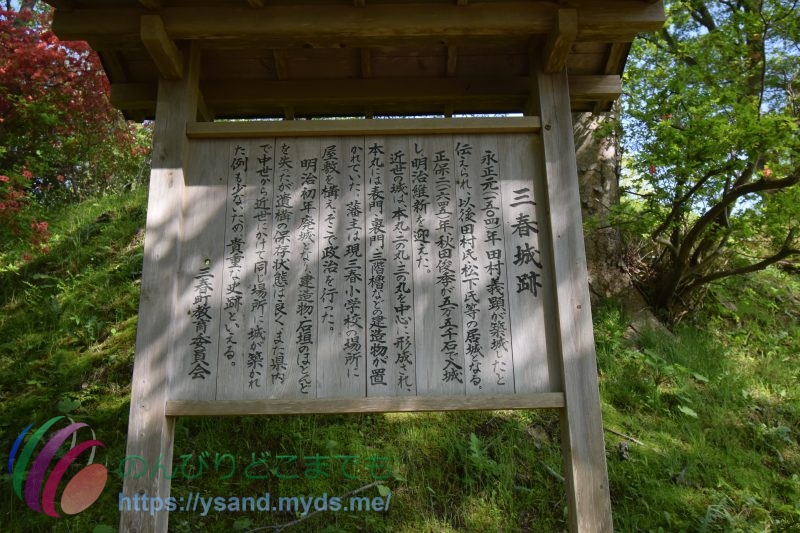 三春城跡
永正元(一五〇四)年田村義顕が築城したと
伝えられ、以後田村氏、松下氏等の居城となる。
正保二(一六四五)年秋田俊季が五万五千石で入城
し、明治維新を迎えた。
近世の城は、本丸、二の丸、三の丸を中心に形成され、
本丸には表門、裏門、三階櫓などの建造物が置
かれていた。藩主は現三春小学校の場所に
屋敷を構え、そこで政治を行った。
明治初年廃城となり建造物・石垣のほとんど
を失ったが遺構の保存状態は良く、また県内
で中世から近世にかけて同じ場所に城が築かれ
た例も少ないため貴重な史跡といえる。
三春町教育委員会
のんびりどこまでも
https://ysand.myds.me/